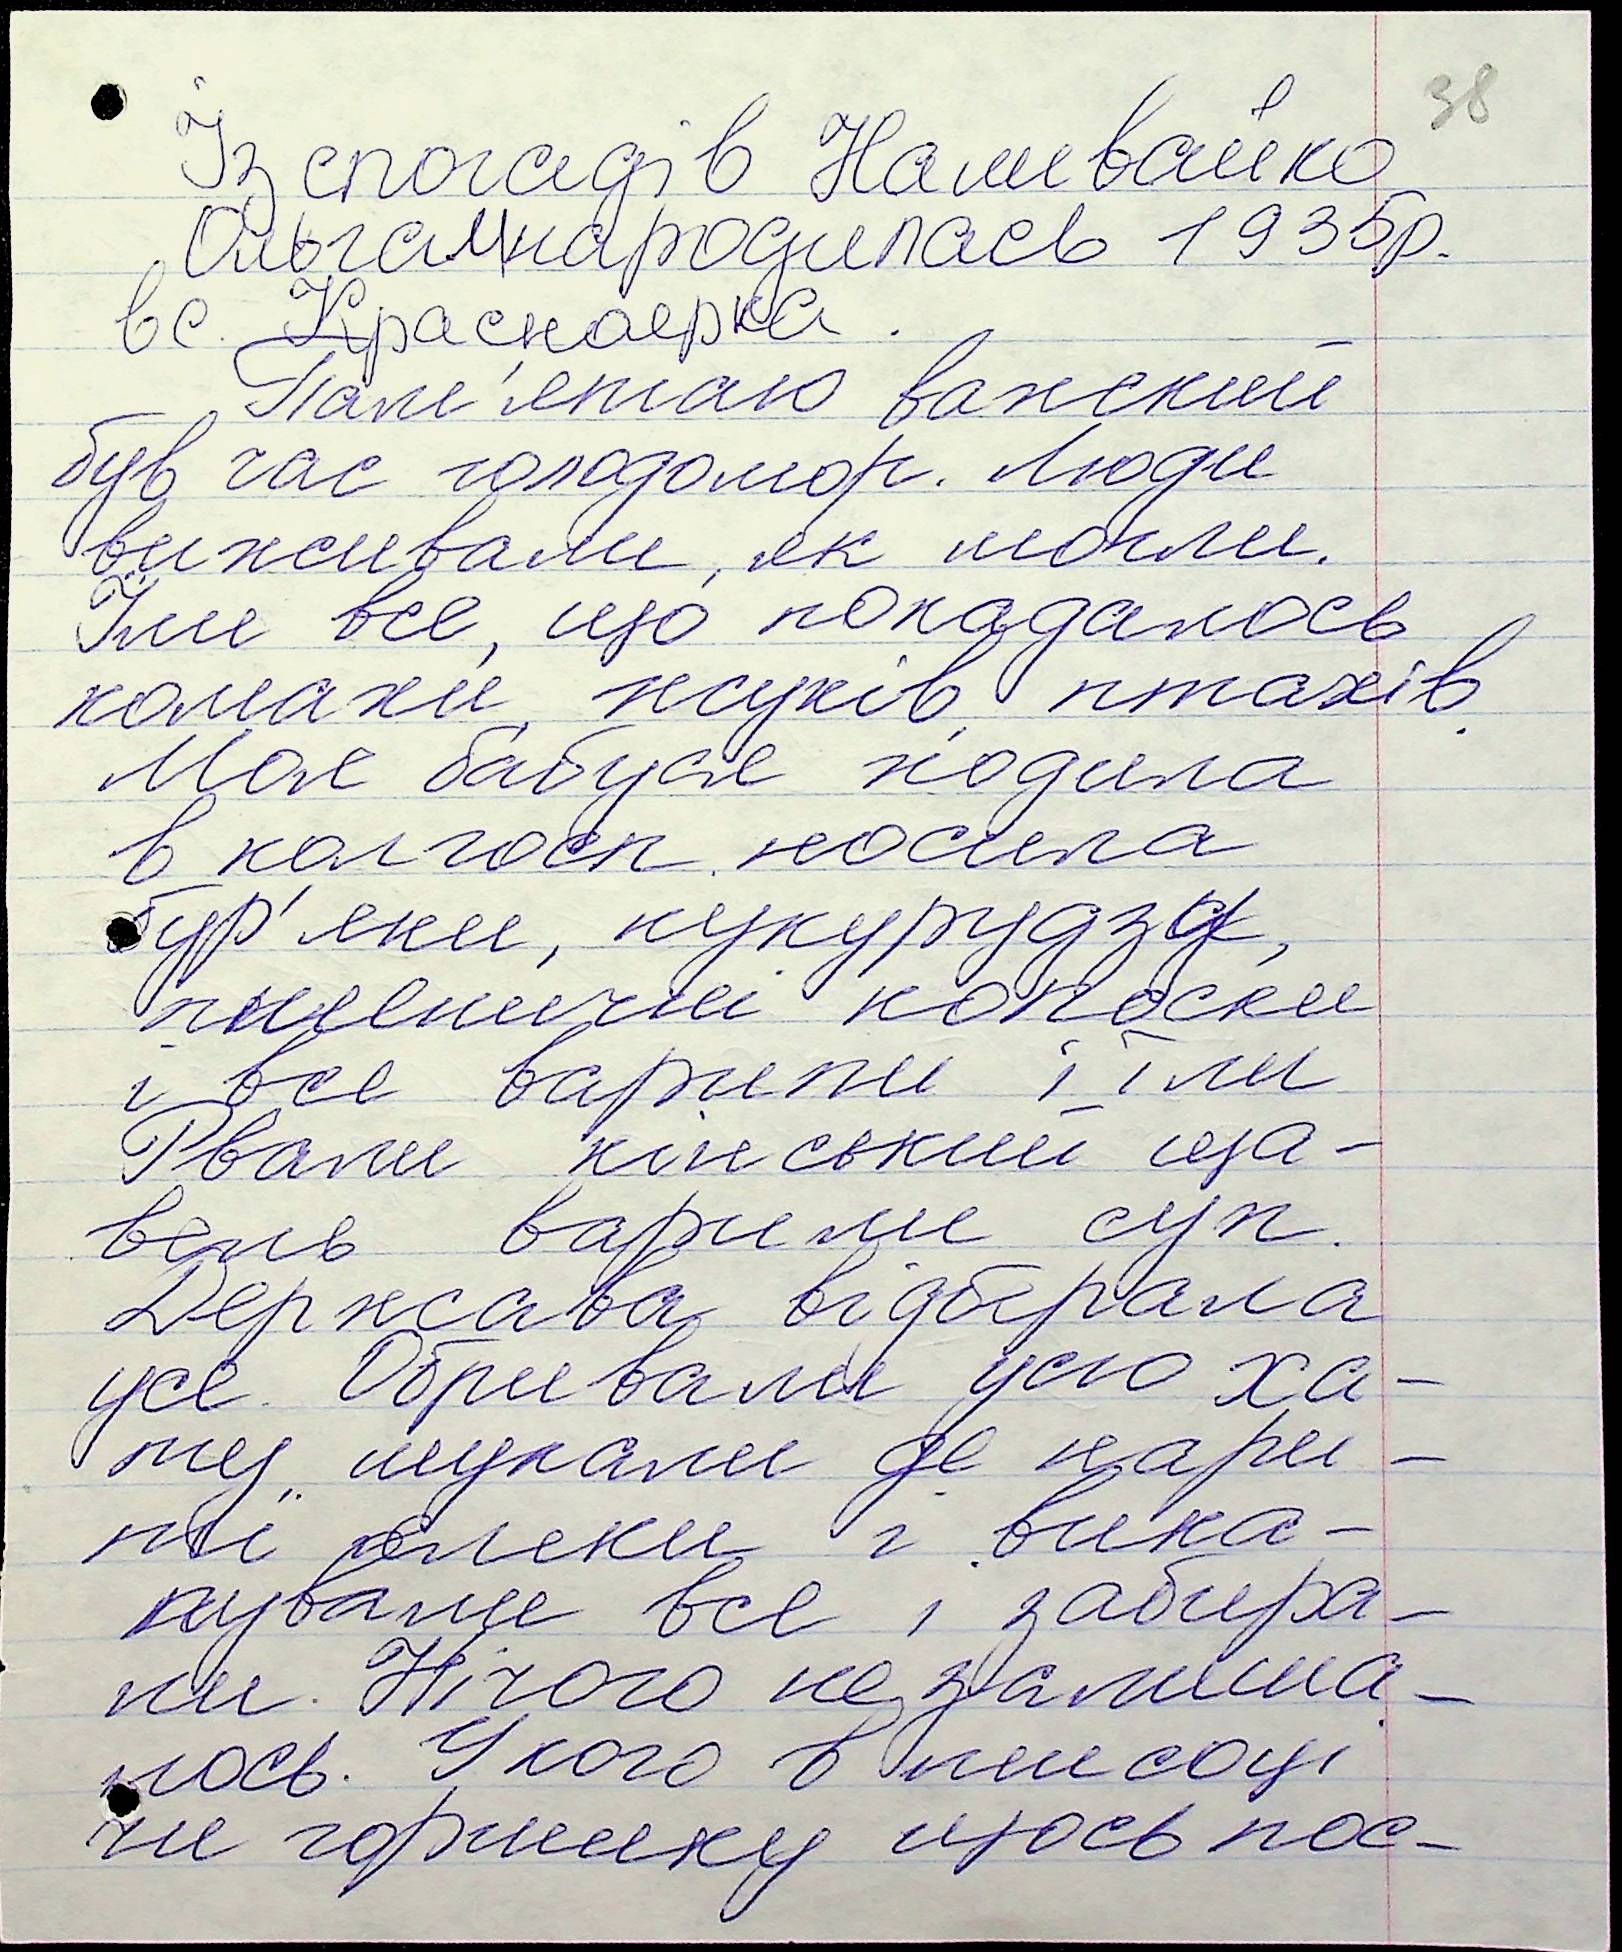 38
Із спогадів Наливайко
Ольга М народилась 1935р.
в с. Красноярка.
Пам'ятаю важкий
був час голодомор. Люди
виживали, як могли.
Їли все, що попадалось
комахи, жуків, птахів.
Моя бабуся ходила
в колгосп носила
бур'яки, кукурудзу,
пшеничні колоски
і все варили і їли
Рвали кінський ща-
вель варили суп.
Держава відбірала
усе. Обривали усю ха-
ту, шукали де нари-
ті ямки і вика-
пували все і забира-
ли. Нічого не залиша-
лось. У кого в мисоці
чи горшику щось пос-